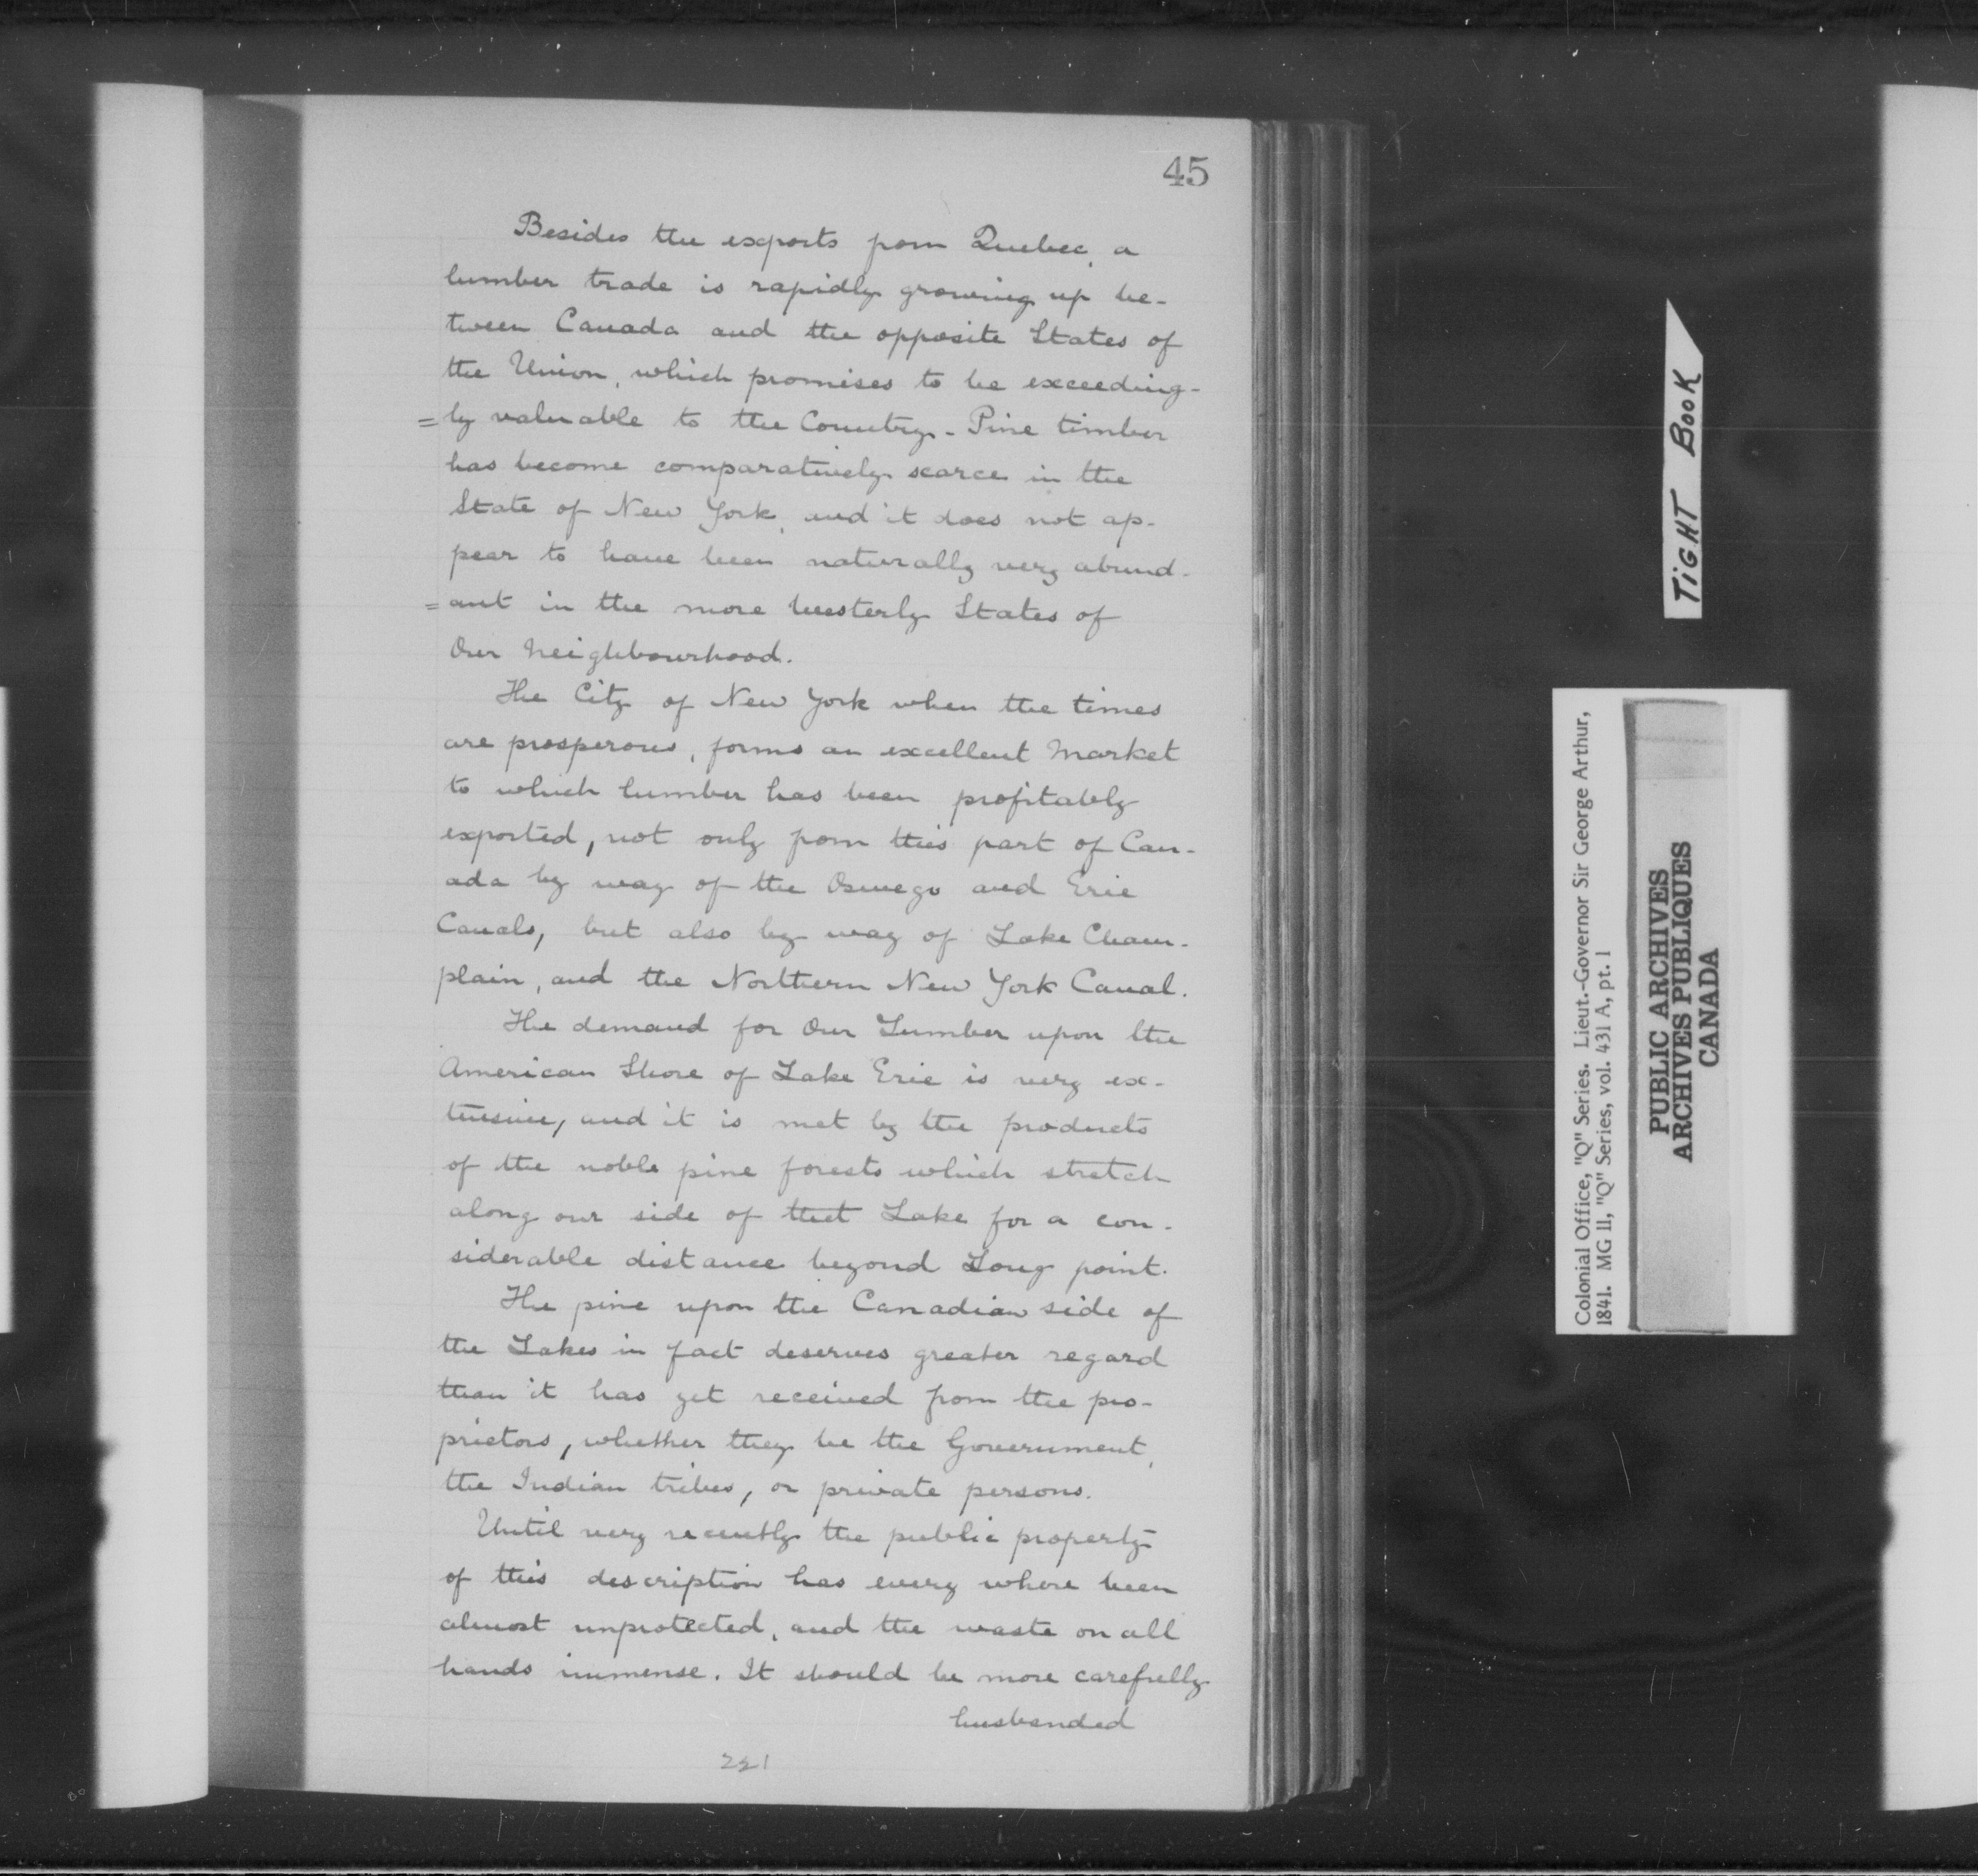 45
Besides the exports from Quebec, a
lumber trade is rapidly growing up be-
tween Canada and the opposite States of
the Union, which promises to be exceeding-
=ly valuable to the Country - Pine timber
has become comparatively scarce in the
State of New York, and it does not ap-
pear to have been naturally very abund-
=ant in the more Westerly States of
Our Neighbourhood.
The City of New York when the times
are prosperous, forms an excellent Market
to which lumber has been profitably
exported, not only from this part of Can-
ada by way of the Oswego and Erie
Canals, but also by way of Lake Cham-
plain, and the Northern New York Canal.
The demand for Our Lumber upon the
American Shore of Lake Erie is very ex-
tensive, and it is met by the products
of the noble pine forests which stretch
along our side of that Lake for a con-
siderable distance beyond Long point.
The pine upon the Canadian side of
the Lakes in fact deserves greater regard
than it has yet received from the pro-
prietors, whether they be the Government,
the Indian tribes, or private persons.
Until very recently the public property
of this description has every where been
almost unprotected, and the waste on all
hands immense. It should be more carefully
husbanded
221
TIGHT BOOK
Colonial Office, "Q" Series. Lieut.-Governor Sir George Arthur,
1841. MG 11, "Q" Series, vol. 431 A, pt. 1
PUBLIC ARCHIVES
ARCHIVES PUBLIQUES
CANADA